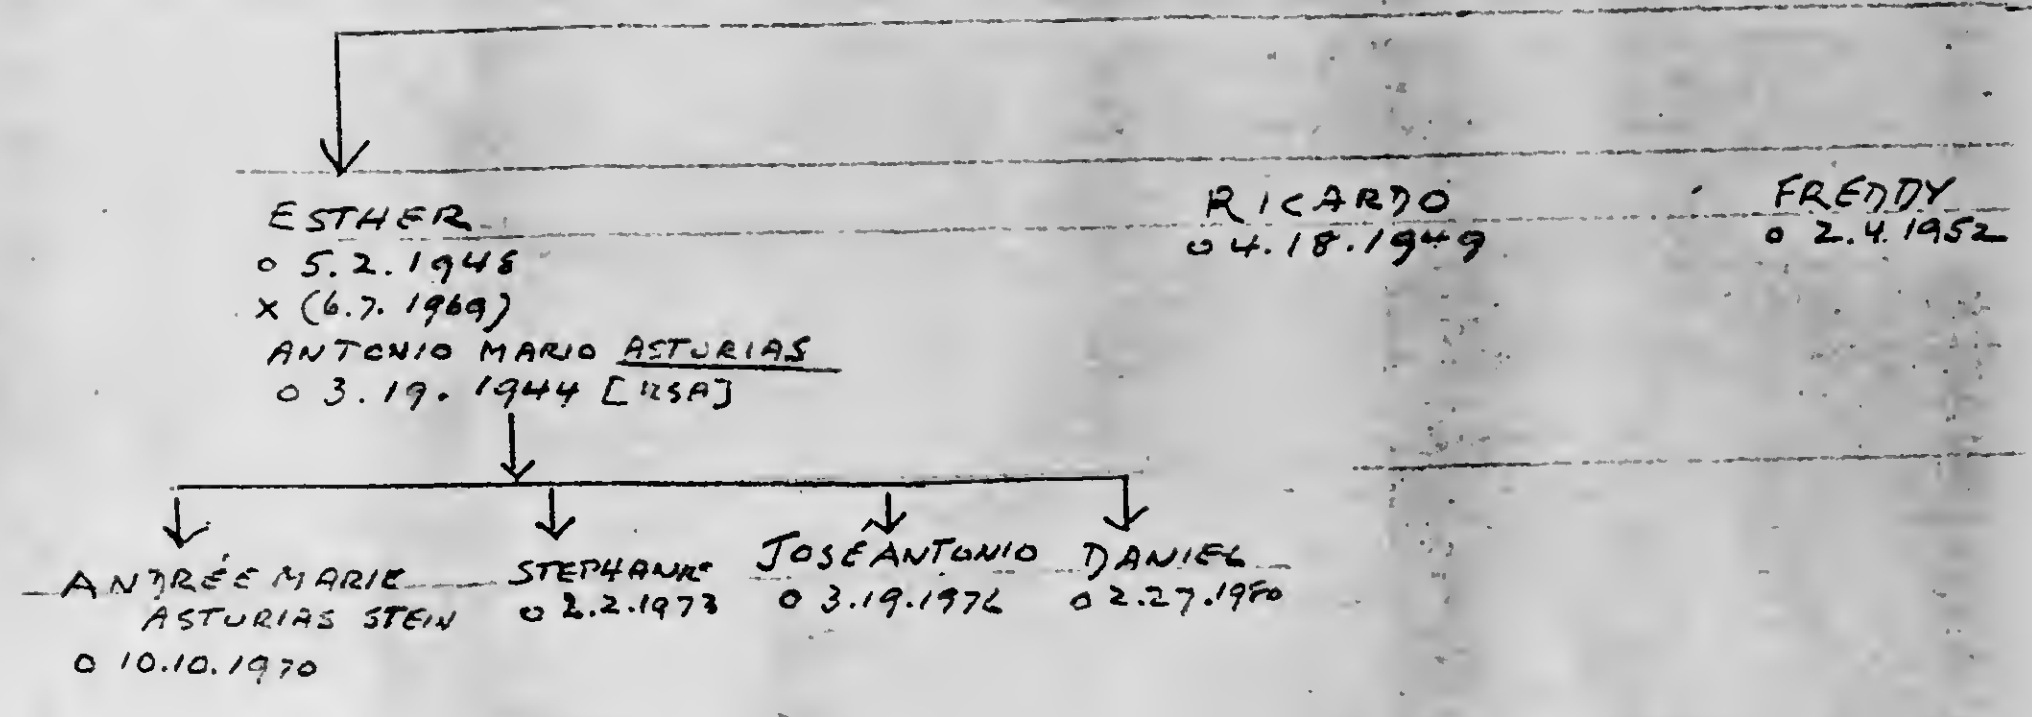 ESTHER
o 5.2.1948
x (6.7.1969)
ANTONIO MARIO ASTURIAS
o 3.19.1944 [USA]
RICARDO
o 4.18.1949
FREDDY
o 2.4.1952
ANDRÉE MARIE
ASTURIAS STEIN
o 10.10.1970
STEPHANIE
o 2.2.1973
JOSÉ ANTONIO
o 3.19.1976
DANIEL
o 2.27.1980